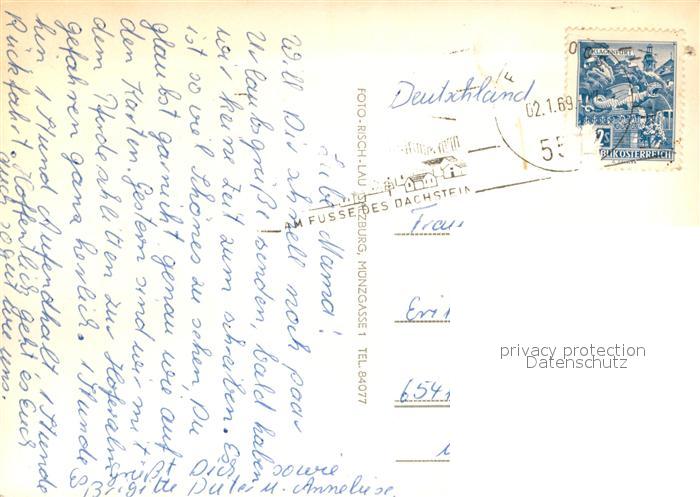 Liebe Mama!
Will Dir schnell noch paar
Urlaubsgrüße senden, bald haben
wir keine Zeit zum schreiben. Es
ist so viel Schönes zu sehen, Du
glaubst garnicht genau wie auf
den Karten. Gestern sind wir mit
dem Pferdeschlitten zur
gefahren ganz herlich. 1 Stunde
hin 1 Stund Aufendhalt 1 Stunde
Rückfahrt. Hoffentlich geht es Euch
auch so gut wie uns.
Es grüßt Dich sowie
Brigitte Dieter u. Anneliese.
FOTO-RISCH-LAU SALZBURG, MÜNZGASSE 1 TEL. 84077
Deutschland
02.1.69
55
AM FUSSE DES DACHSTEIN
KLAGENFURT
2S
REPUBLIK ÖSTERREICH
Frau
Eri
654
privacy protection
Datenschutz